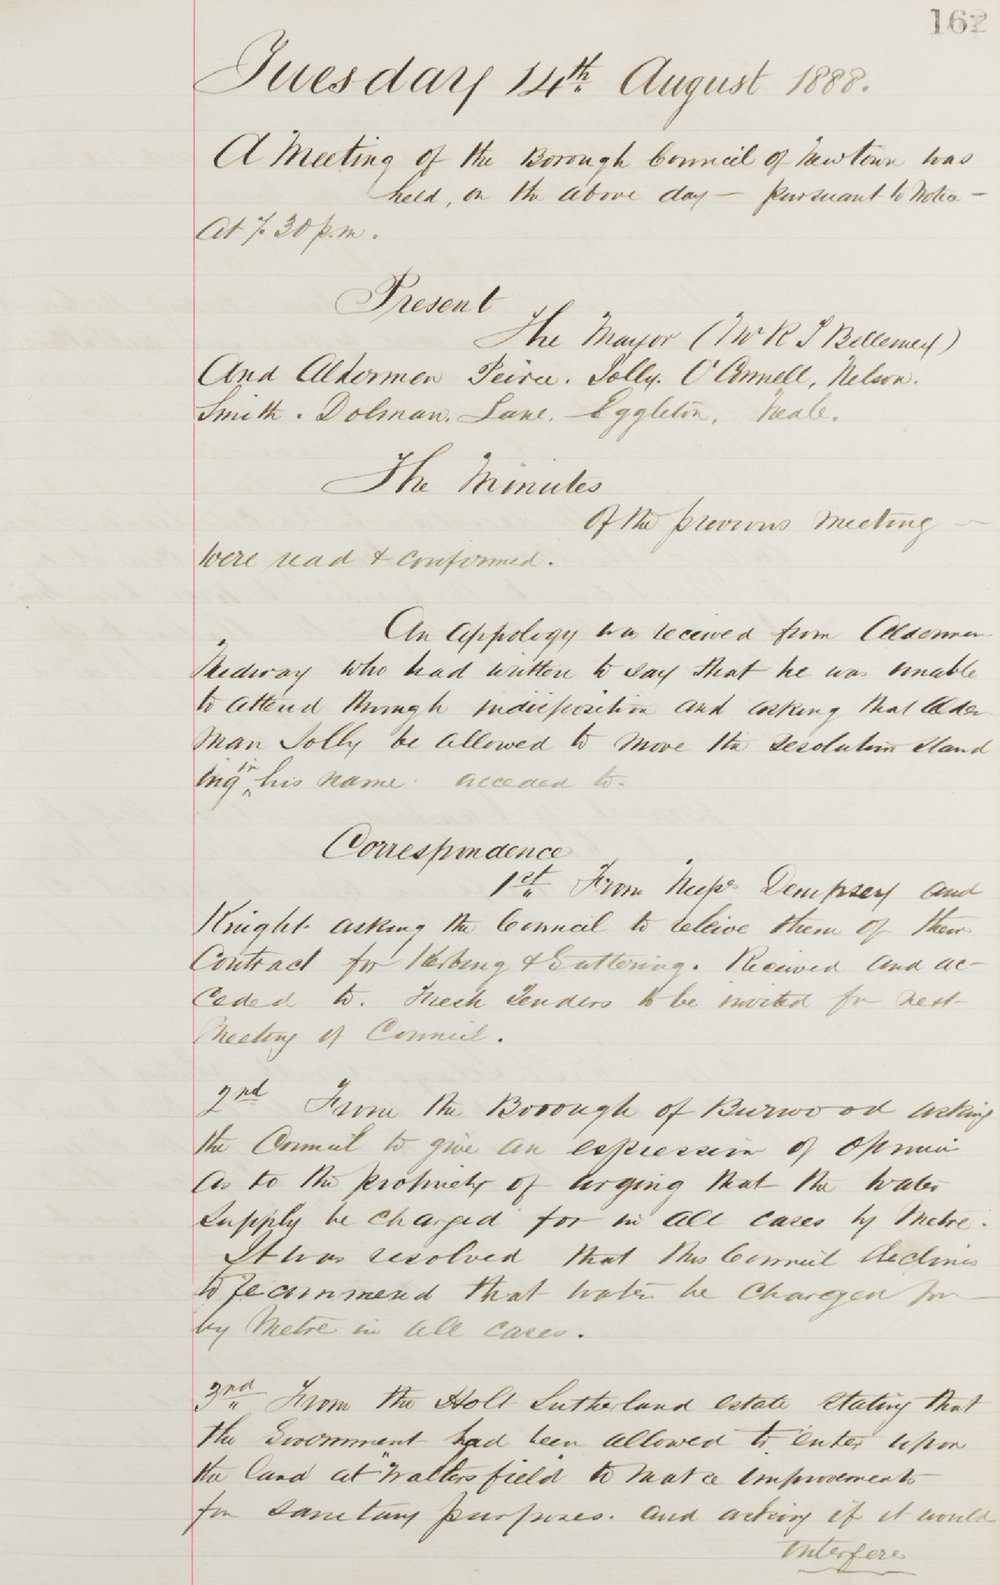 162
Tuesday 14th August 1888.
A Meeting of the Borough Council of Newtown was
held, on the above day — pursuant to Notice —
At 7.30 p.m.
Present
The Mayor (Mr R T Bellemey)
And Aldermen Peirce. Jolly. O'Connell, Nelson.
Smith. Dolman. Lane. Eggleton, Neale.
The Minutes
Of the previous meeting —
were read & confirmed.
An Appology was received from Alderman
Medway who had written to say that he was unable
to attend through indisposition and asking that Alder
man Jolly be allowed to move the resolution stand
ing in his name. acceded to.
Correspondence
1st From Messrs Dempsey and
Knight. asking the Council to releive them of their
Contract for Kerbing & Guttering. Received and ac-
ceded to. Fresh Tenders to be invited for next
Meeting of Council.
2nd From the Borough of Burwood asking
the Council to give an expression of opinion
as to the propriety of urging that the water
supply be charged for in all cases by Metre.
It was resolved that this Council declines
to recommend that water be charged for —
by Metre in all cases.
3rd From the Holt Sutherland estate stating that
the Government had been allowed to enter upon
the land at "Waltersfield" to make improvements
for sanitary purposes. and asking if it would
interfere